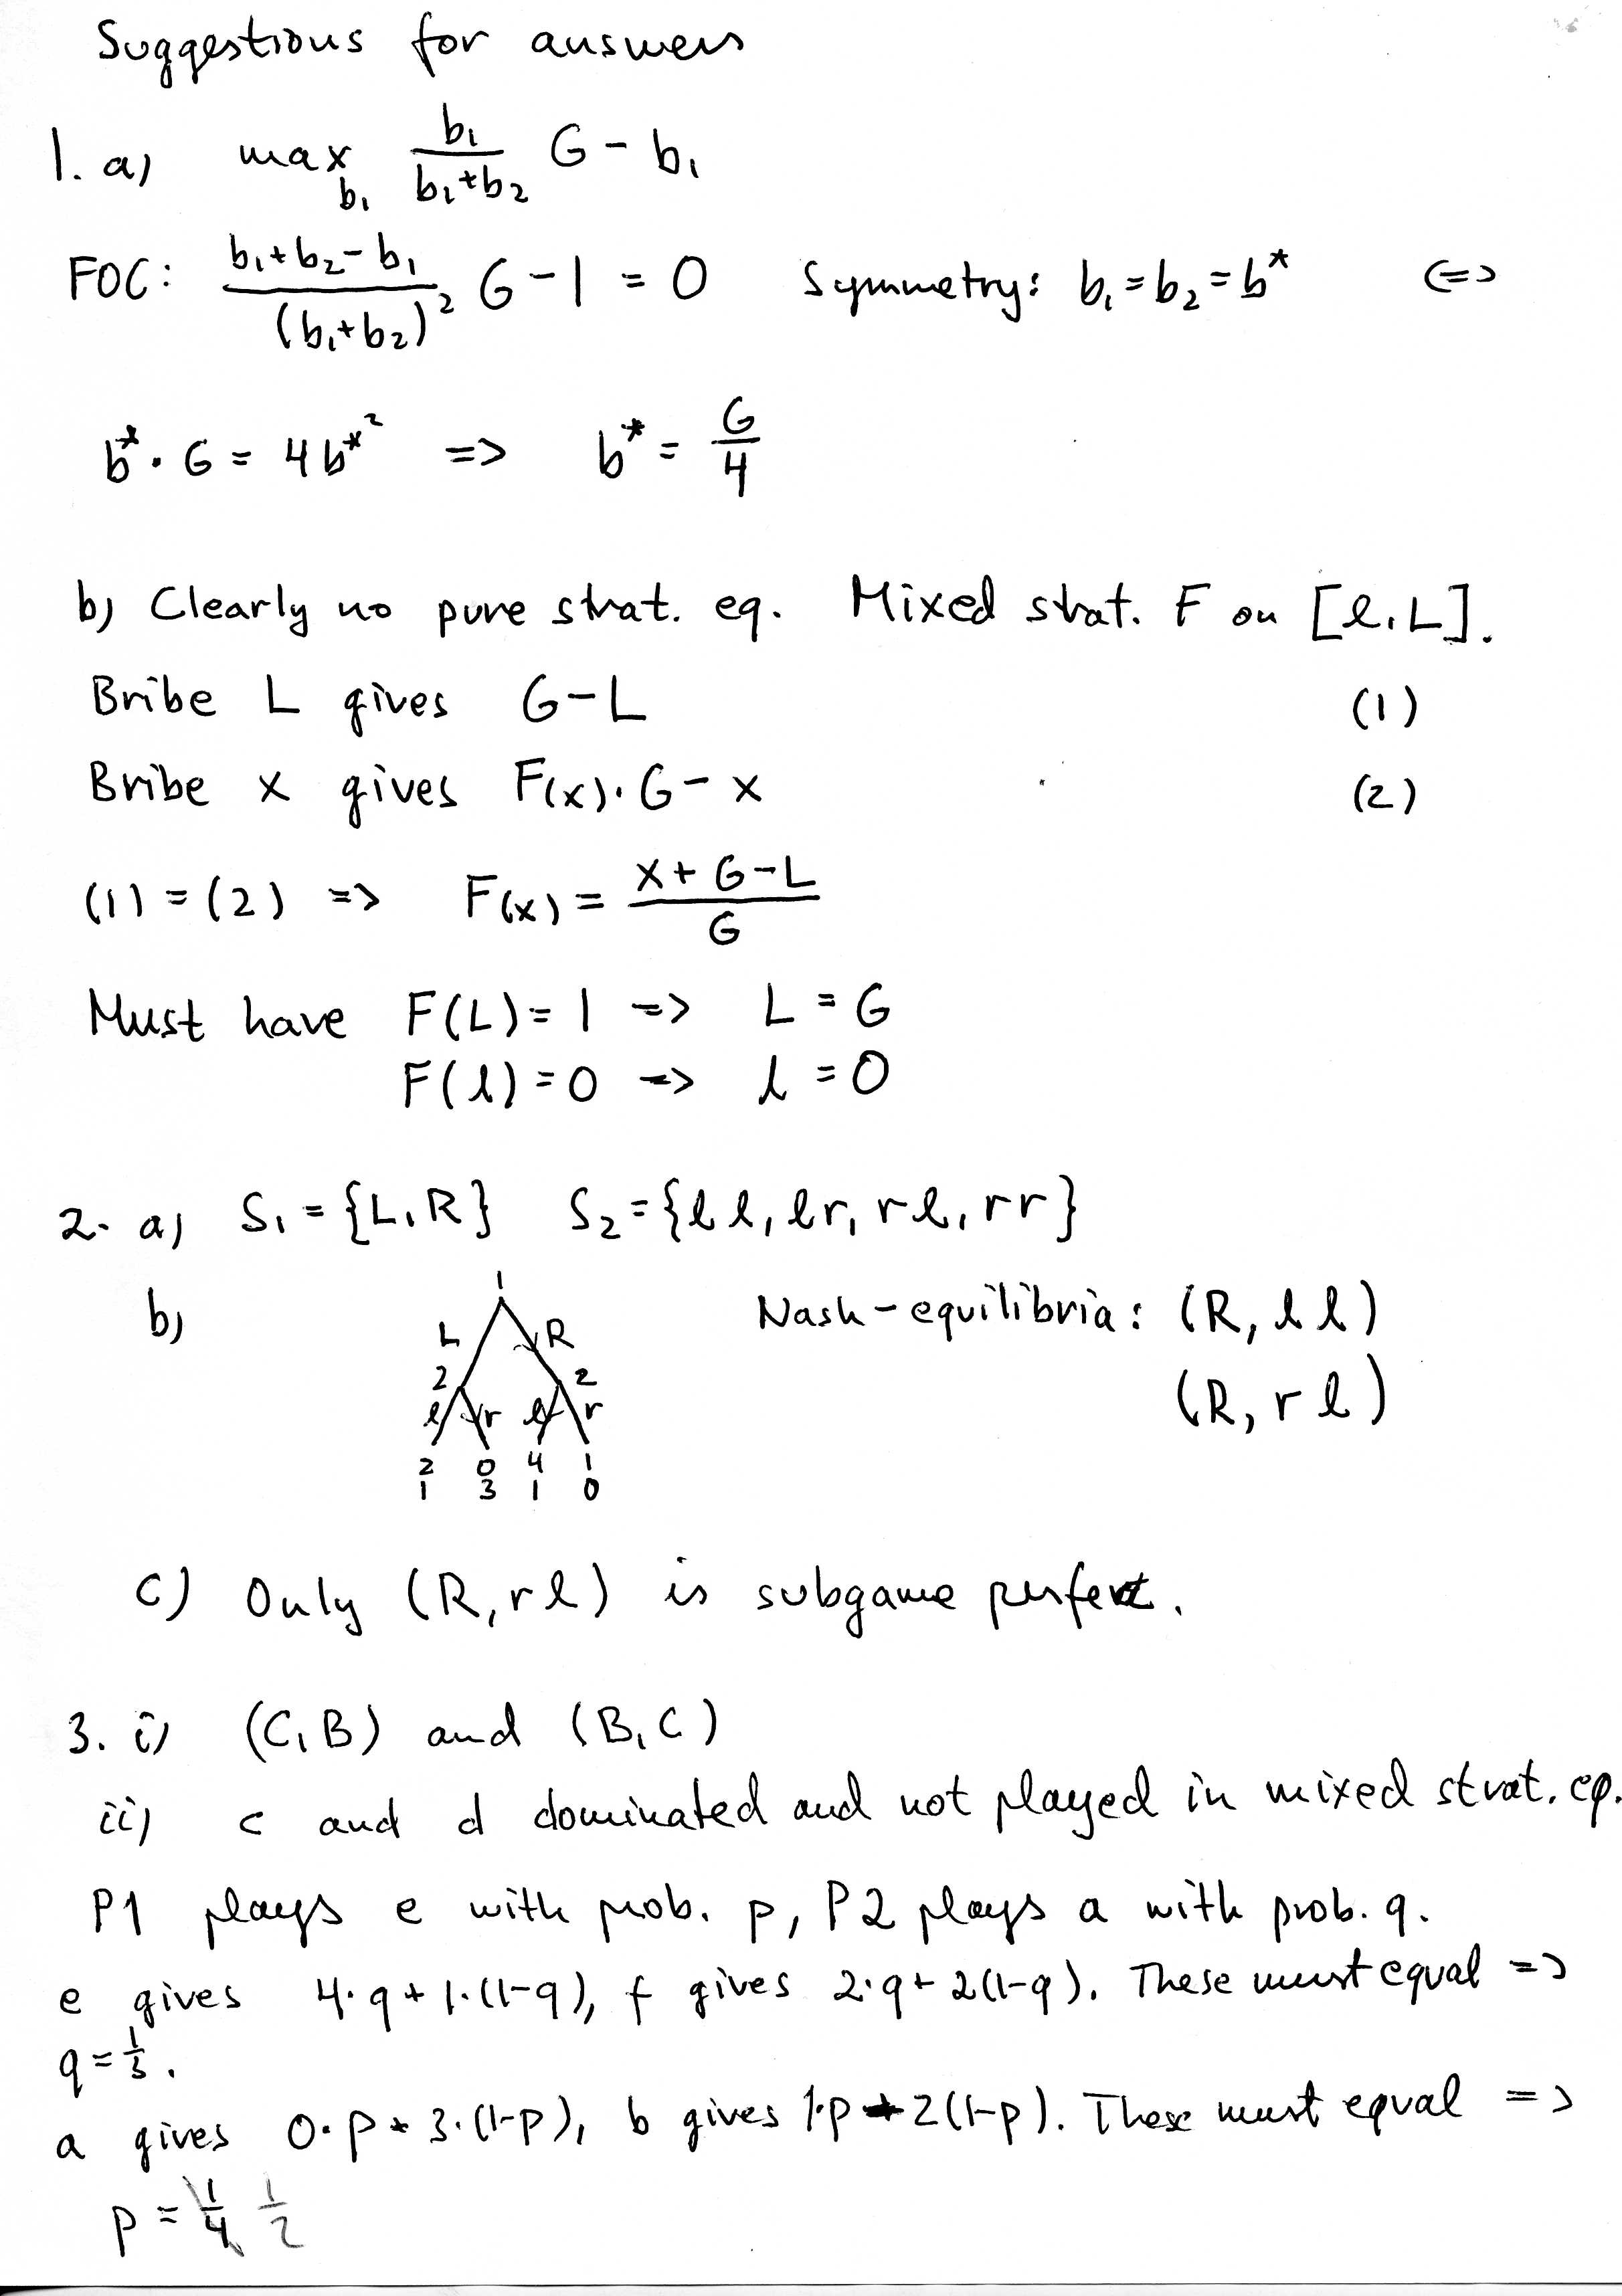 Suggestions for answers
1. a) max b₁ b₁/(b₁+b₂) G - b₁
FOC: (b₁+b₂-b₁)/(b₁+b₂)² G - 1 = 0 Symmetry: b₁ = b₂ = b* <=>
b* · G = 4b*² => b* = G/4
b) Clearly no pure strat. eq. Mixed strat. F on [l, L].
Bribe L gives G-L (1)
Bribe x gives F(x)·G - x (2)
(1) = (2) => F(x) = (x+G-L)/G
Must have F(L) = 1 => L = G
F(l) = 0 => l = 0
2. a) S₁ = {L, R} S₂ = {ll, lr, rl, rr}
b) 1 Nash-equilibria: (R, ll)
L R
2 2 (R, rl)
l r l r
2 0 4 1
1 3 1 0
c) Only (R, rl) is subgame perfect.
3. i) (C, B) and (B, C)
ii) c and d dominated and not played in mixed strat. eq.
P1 plays e with prob. p, P2 plays a with prob. q.
e gives 4·q + 1·(1-q), f gives 2·q + 2(1-q). These must equal =>
q = 1/3.
a gives 0·p + 3·(1-p), b gives 1·p + 2(1-p). These must equal =>
p = 1/4 1/2